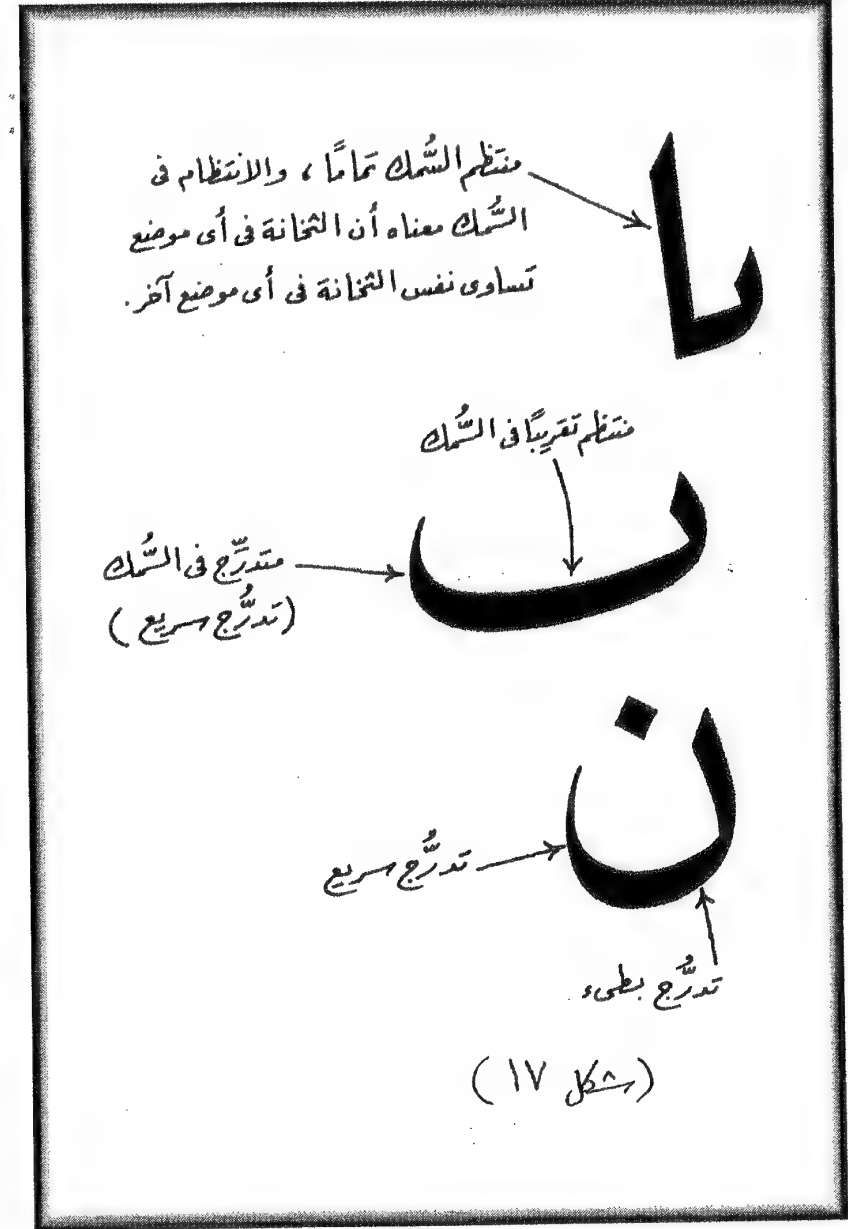 منتظم السُّمك تمامًا ، والانتظام فى
السُّمك معناه أن الثخانة فى أى موضع
تساوى نفس الثخانة فى أى موضع آخر .
با
منتظم تقريبًا فى السُّمك
متدرِّج فى السُّمك
( تدرُّج سريع )
ٮ
ن
تدرُّج سريع
تدرُّج بطىء
( شكل ١٧ )